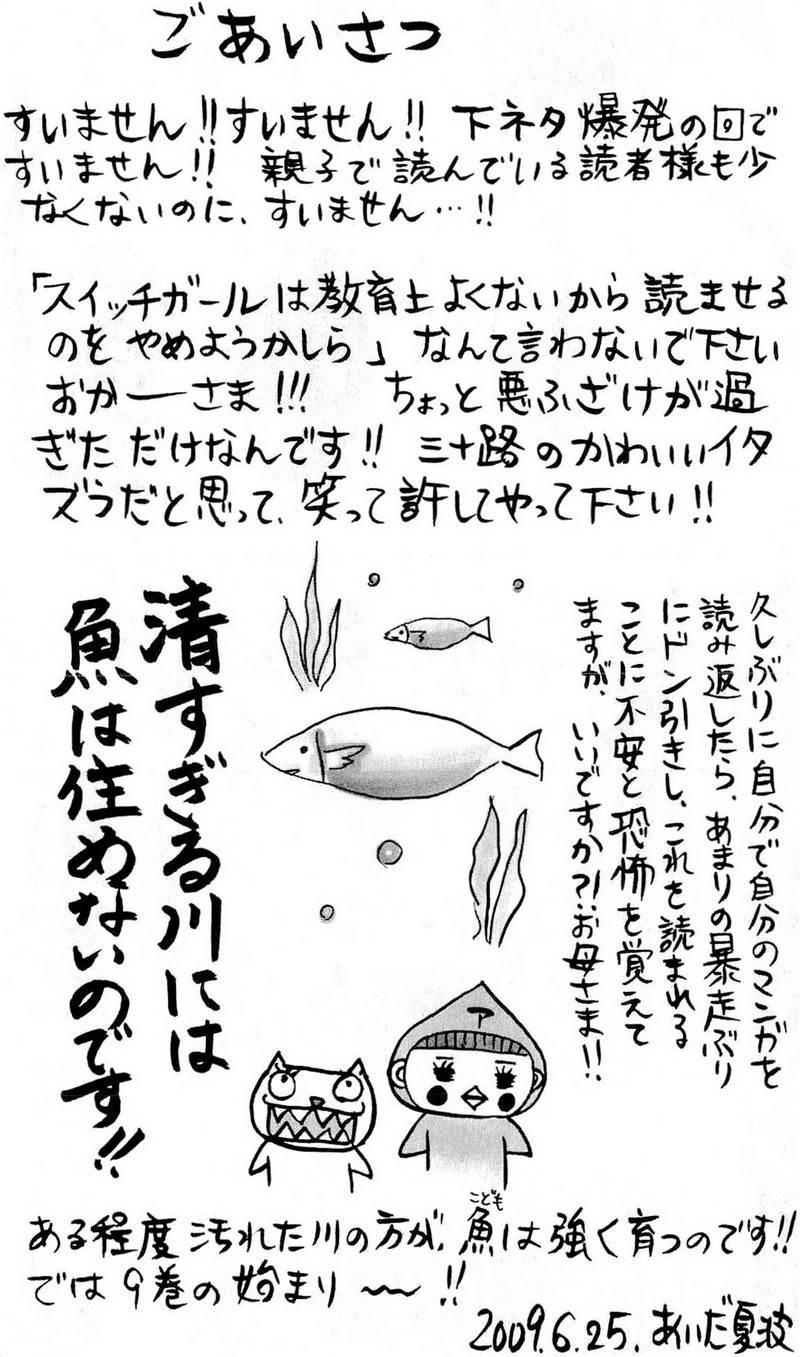 ごあいさつ
すいません!!すいません!! 下ネタ爆発の回で
すいません!! 親子で読んでいる読者様も少
なくないのに、すいません…!!
「スイッチガールは教育上よくないから読ませる
のをやめようかしら」なんて言わないで下さい
おかーさま!!! ちょっと悪ふざけが過
ぎただけなんです!! 三十路のかわいいイタ
ズラだと思って、笑って許してやって下さい!!
久しぶりに自分で自分のマンガを
読み返したら、あまりの暴走ぶり
にドン引きし、これを読まれる
ことに不安と恐怖を覚えて
ますが、いいですか?!お母さま!!
清すぎる川には
魚は住めないのです!!
ア
ある程度汚れた川の方が、魚は強く育つのです!!
こども
では9巻の始まり〜!!
2009.6.25. あいだ夏波